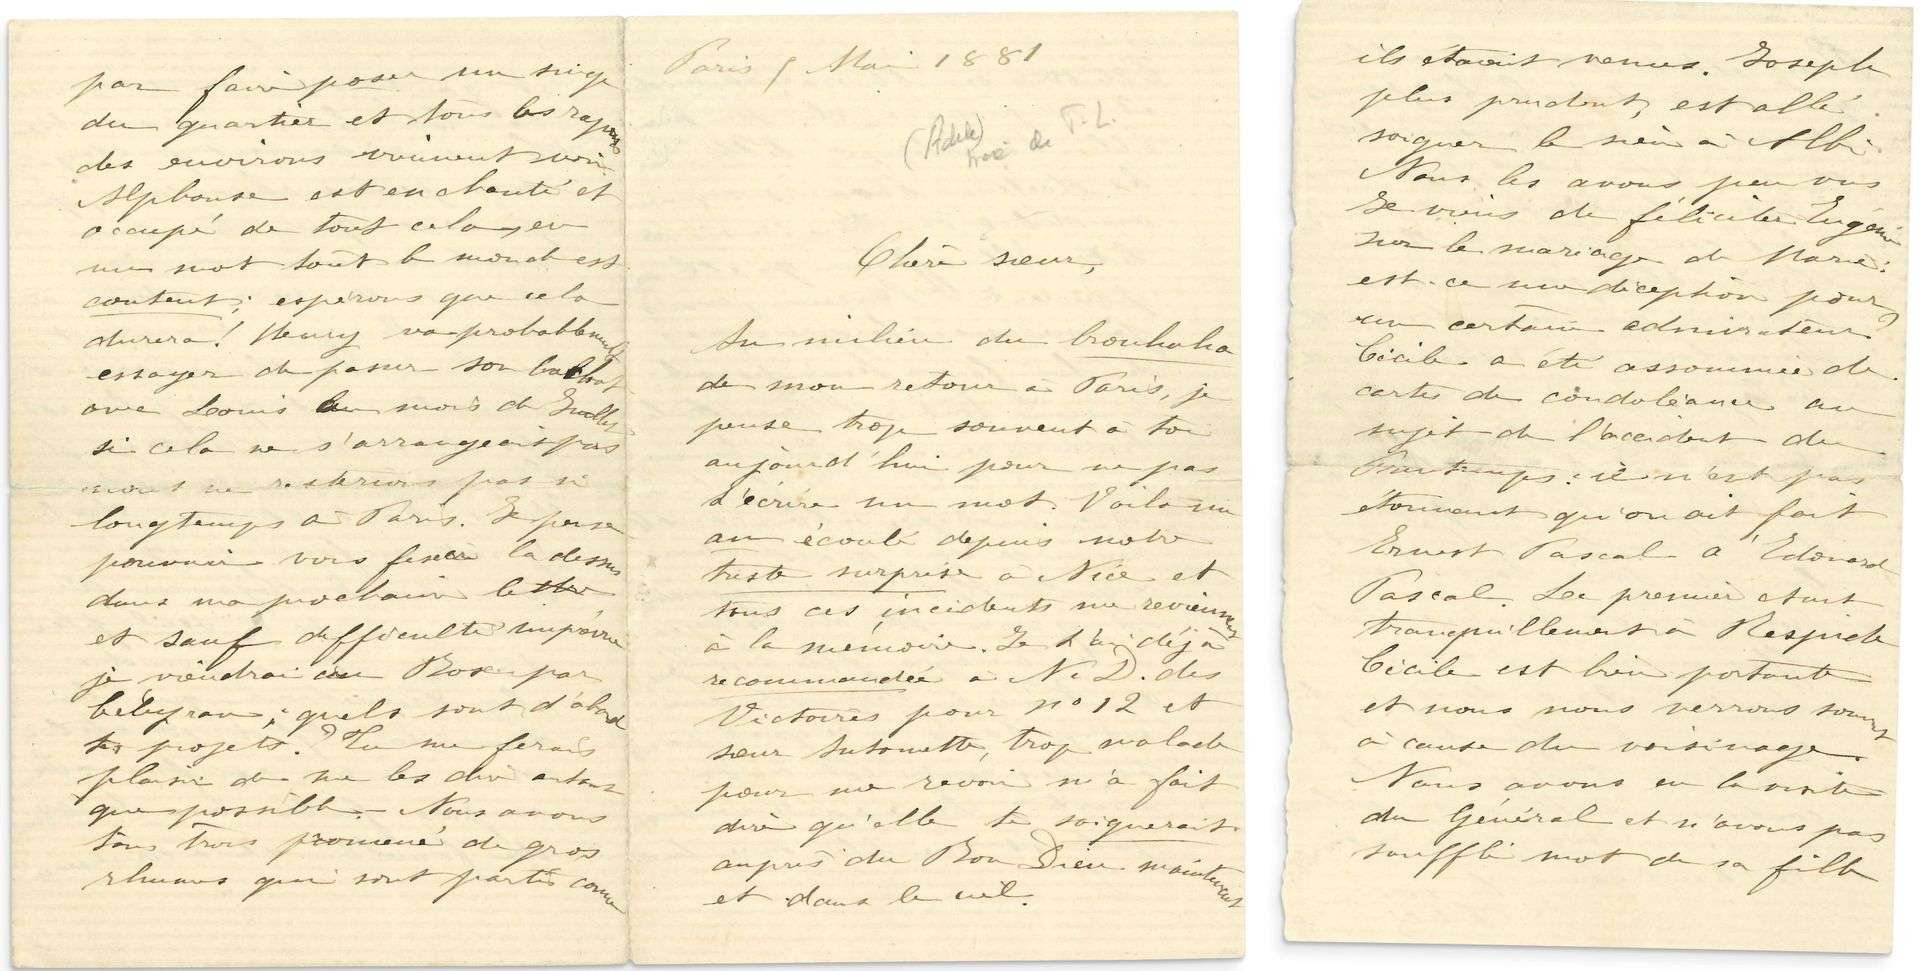 Paris 5 Mai 1881
(Adele)
de T. L.
Chère sœur,
Au milieu du brouhaha
de mon retour à Paris, je
pense trop souvent à toi
aujourd'hui pour ne pas
t'écrire un mot. Voilà un
an écoulé depuis notre
triste surprise à Nice et
tous ces incidents me reviennent
à la mémoire. Je t'ai déjà
recommandée à N. D. des
Victoires pour nº 12 et
sœur Antonette, trop malade
pour me revoir m'a fait
dire qu'elle te soignerait
auprès du Bon Dieu maintenant
et dans le ciel.
par faire poser un singe
du quartier et tous les rapins
des environs viennent voir
Alphonse est enchanté et
occupé de tout cela, en
un mot tout le monde est
content; espérons que cela
durera! Henry va probablement
essayer de passer son bachot
avec Louis au mois de Juillet
si cela ne s'arrangeait pas
nous ne resterions pas si
longtemps à Paris. Je pense
pouvoir vous fixer la dessus
dans ma prochaine lettre
et sauf difficulté imprévue
je viendrai au Bosc par
; quels sont d'abord
tes projets? Tu me ferais
plaisir de me les dire autant
que possible. - Nous avons
tous trois promené de gros
rhumes qui sont partis comme
ils étaient venus. Joseph
plus prudent, est allé
soigner le sien à Albi.
Nous les avons peu vus
Je viens de féliciter Eugénie
sur le mariage de Marie:
est-ce une déception pour
un certain admirateur?
Cécile a été assommée de
cartes de condoléance au
sujet de l'accident du
Printemps: il n'est pas
étonnant qu'on ait fait
Ernest Pascal d'Edouard
Pascal. Le premier était
tranquillement à Respide
Cécile est bien portante
et nous nous verrons souvent
à cause du voisinage.
Nous avons eu la visite
du Général et n'avons pas
soufflé mot de sa fille